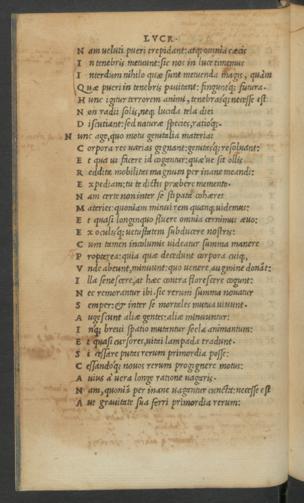 LVCR.
N am veluti pueri trepidant: atq; omnia cæcis
I n tenebris metuunt: sic nos in luce timemus
I nterdum nihilo quæ sunt metuenda magis, quàm
Q uæ pueri in tenebris pauitant: finguntq; futura.
H unc igitur terrorem animi, tenebrasq; necesse est
N on radii solis, neq; lucida tela diei
D iscutiant: sed naturæ species, ratioq.
N unc age, quo motu genitalia materiai
C orpora res varias gignant: genitasq; resoluant:
E t qua ui facere id cogantur: quæ'ue sit ollis
R eddita mobilitas magnum per inane meandi:
E xpediam; tu te dictis præbere memento.
N am certe non inter se stipata cohæret
M ateries: quoniam minui rem quanq; uidemus:
E t quasi longinquo fluere omnia cernimus æuo:
E x oculisq; uetustatem subducere nostris:
C um tamen incolumis uideatur summa manere
P ropterea: quia quæ decedunt corpora cuiq,
V nde abeunt, minuunt: quo uenere, augmine donãt:
I lla senescere, at hæc contra florescere cogunt:
N ec remorantur ibi. sic rerum summa nouatur
S emper: & inter se mortales mutua uiuunt.
A ugescunt aliæ gentes: aliæ minuuntur:
I nq; breui spatio mutantur secla animantum:
E t quasi cursores, uitai lampada tradunt.
S i cessare putes rerum primordia posse:
C essandoq; nouos rerum progignere motus:
A uius à uera longe ratione uagaris.
N am, quoniã per inane uagantur cuncta: necesse est
A ut grauitate sua ferri primordia rerum: